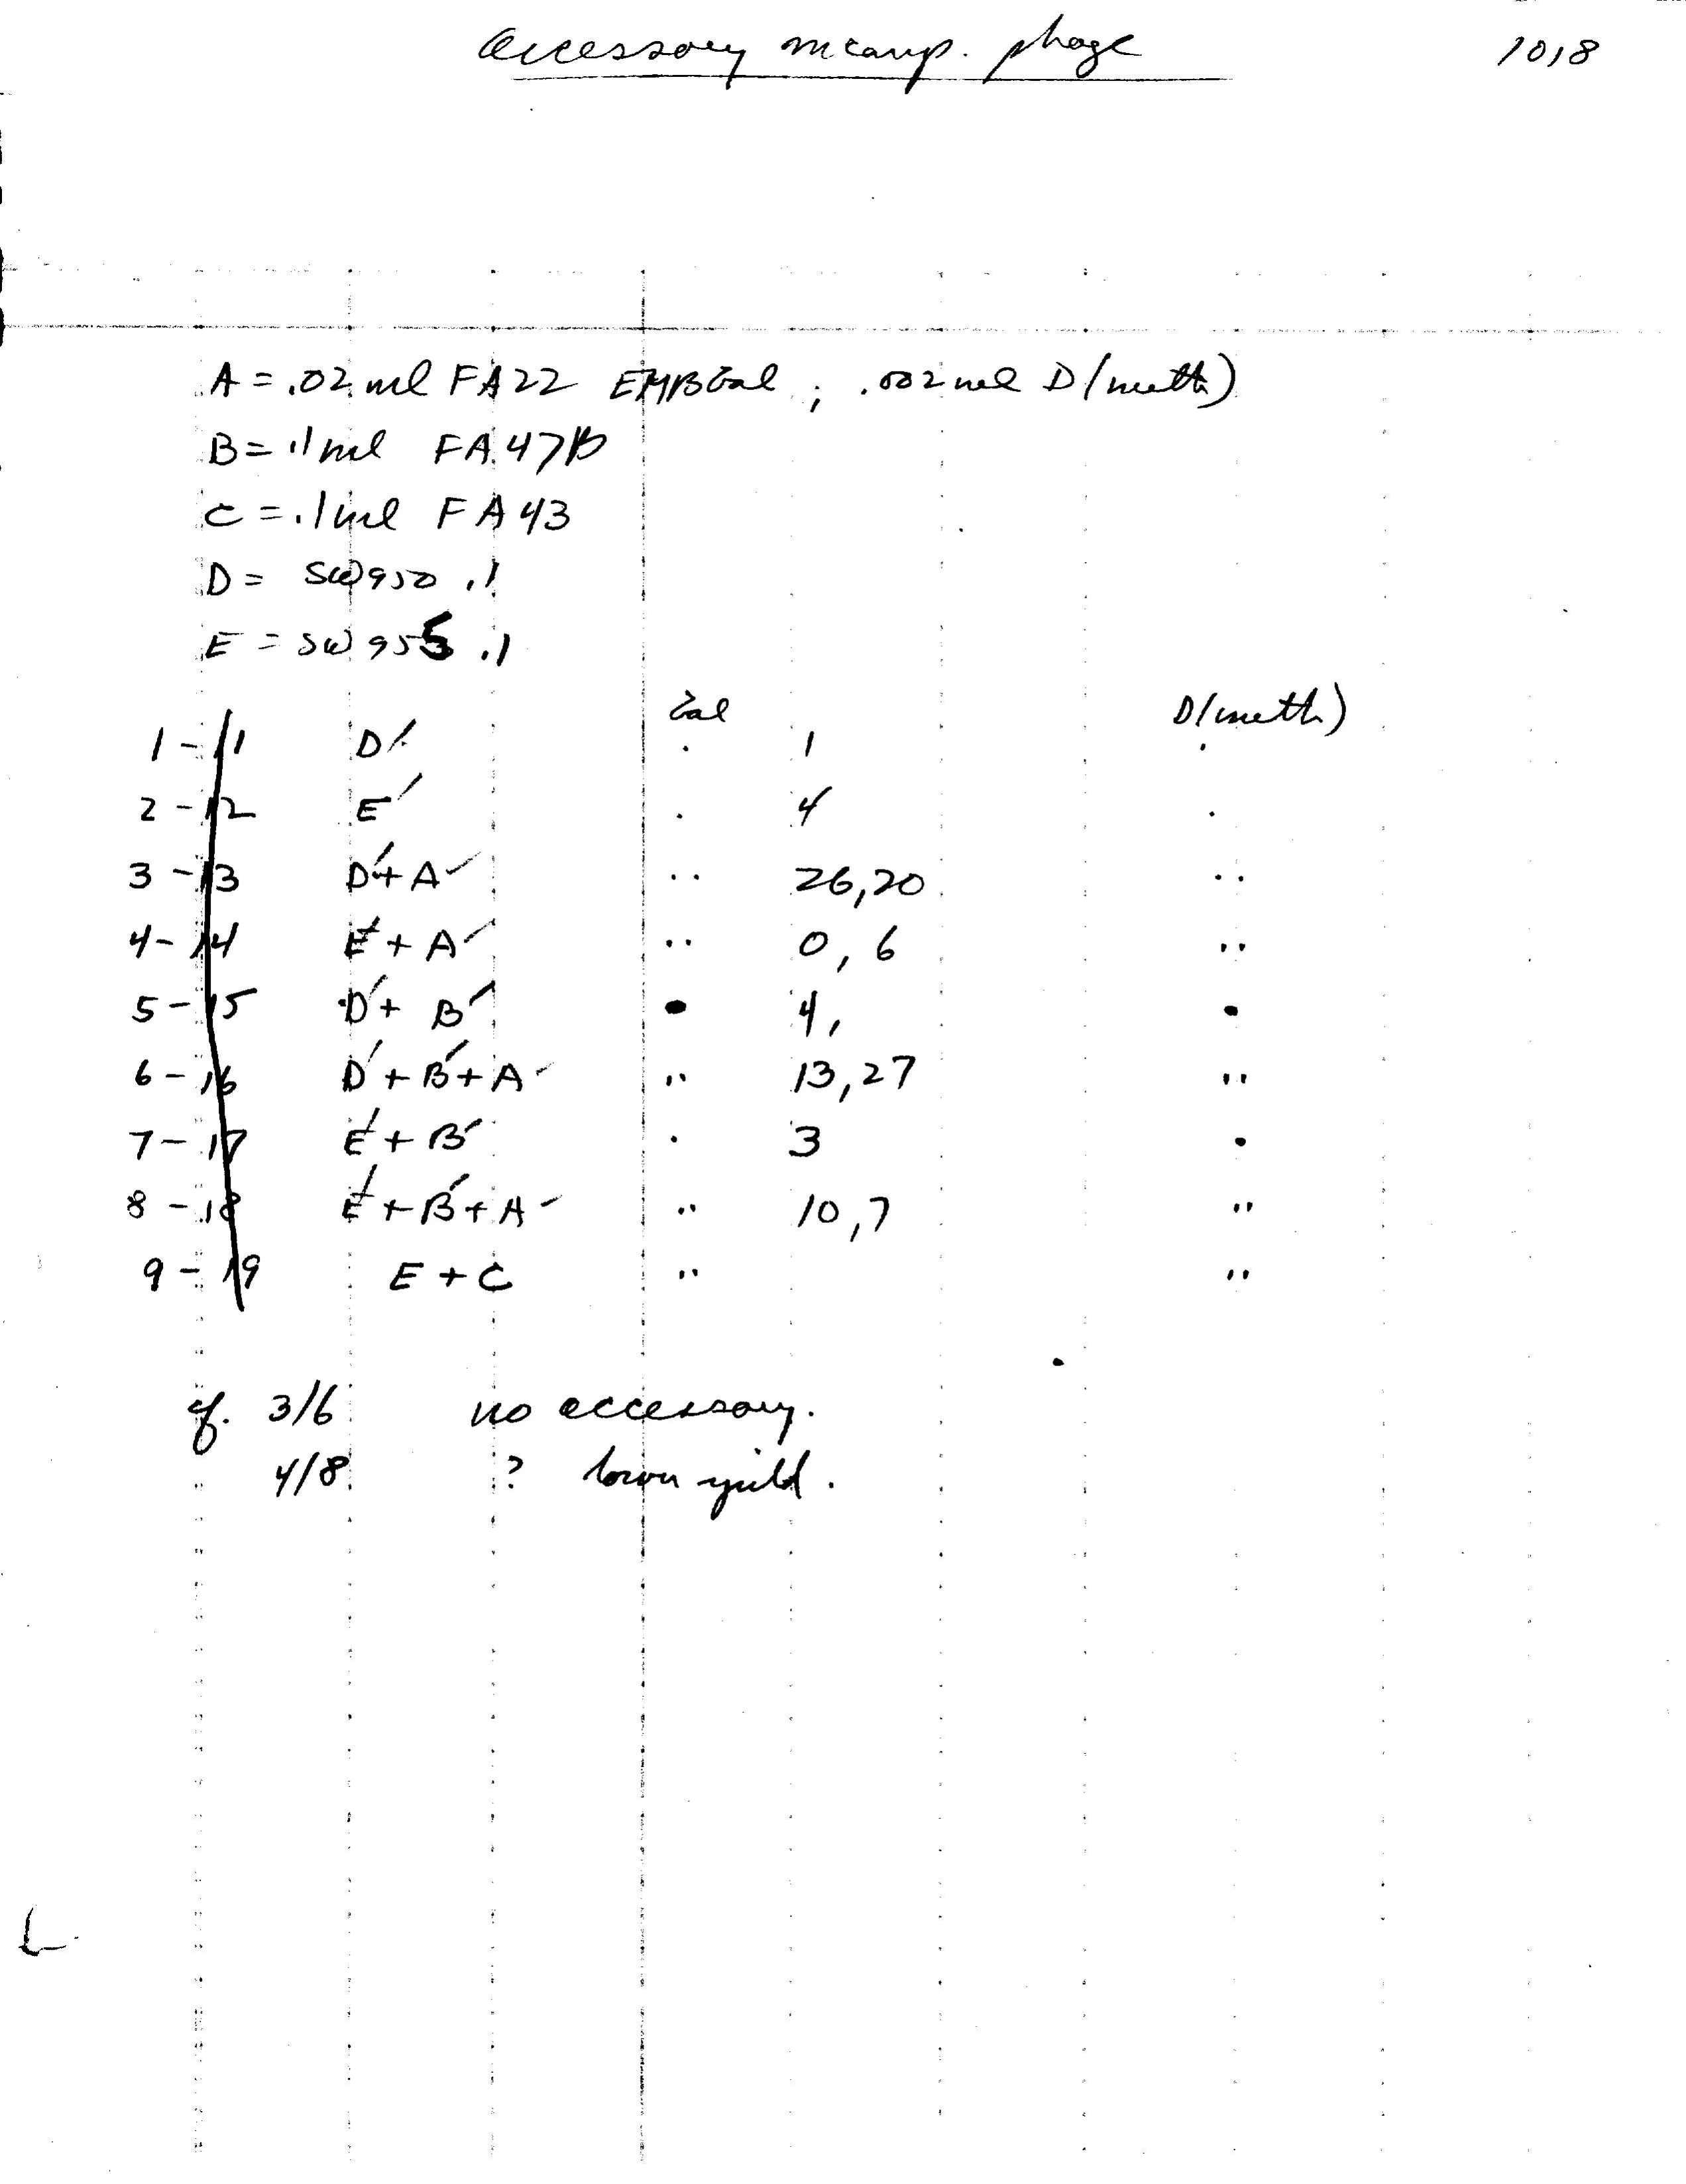 accessory incomp. phage 1018
A = .02 ml FA22 EMBGal ; .002 ml D(meth)
B = .1 ml FA 47B
C = .1 ml FA 43
D = SW950 .1
E = SW955 .1
Gal D(meth)
1 - 11 D . 1 .
2 - 12 E . 4 .
3 - 13 D + A .. 26,20 ..
4 - 14 E + A .. 0, 6 ..
5 - 15 D + B . 4, .
6 - 16 D + B + A .. 13,27 ..
7 - 17 E + B . 3 .
8 - 18 E + B + A .. 10,7 ..
9 - 19 E + C .. ..
cf. 3/6 no accessory.
4/8 ? yield.